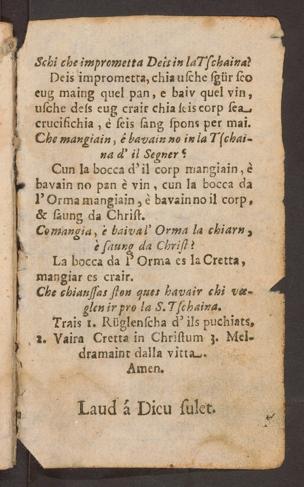 Schi che imprometta Deis in la Tſchaina?
Deis imprometta, chia uſche ſgür ſco
eug maing quel pan, e baiv quel vin,
uſche deſs eug crair chia ſeis corp ſea
crucifichia, è ſeis ſang ſpons per mai.
Che mangiain, é bavain no in la Tſchai-
na d' il Segner?
Cun la bocca d'il corp mangiain, è
bavain no pan è vin, cun la bocca da
l'Orma mangiain, è bavain no il corp,
& ſaung da Chriſt.
Co mangia, è baiva l' Orma la chiarn,
è ſaung da Chriſt?
La bocca da l' Orma es la Cretta,
mangiar es crair.
Che chiauſſas ſton ques havair chi væ-
glen ir pro la S. Tſchaina.
Trais 1. Rüglenſcha d' ils puchiats,
2. Vaira Cretta in Chriſtum 3. Mel-
dramaint dalla vitta.
Amen.
Laud á Dieu ſulet.